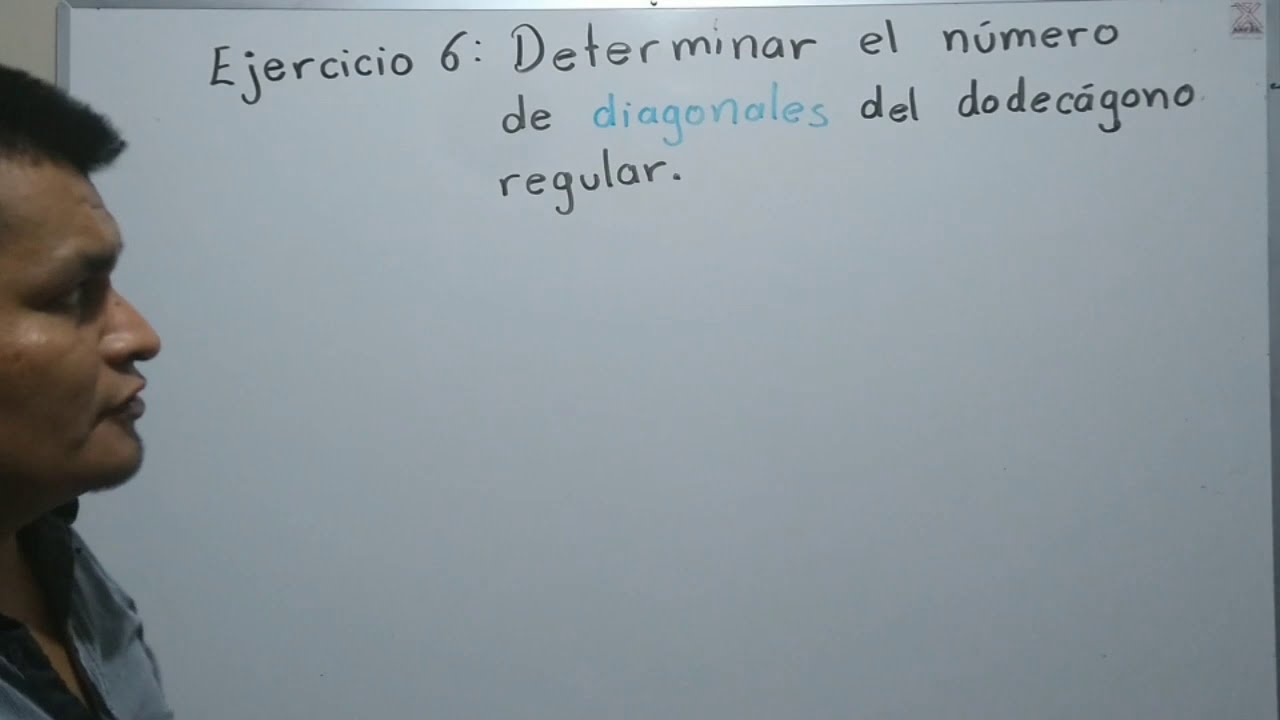 Ejercicio 6: Determinar el número
de diagonales del dodecágono
regular.